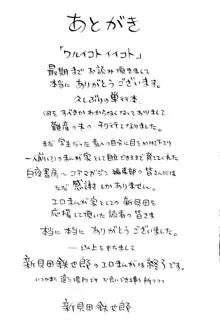 あとがき
「ワルイコトイイコト」
最期までお読み頂きまして
本当にありがとうございます。
久しぶりの単行本
何をすべきかわからなくなっておりまして
難産の末の刊行となりました。
まだ学生だった素人の自分に目をかけて下さり
一人前(?)のまんが家として独立できるまで育てくれた
白夜書房〜コアマガジン 編集部の皆さんには
ただ感謝しかありません。
エロまんが家としての新貝田を
応援して頂いた読者の皆さま
本当に本当にありがとうございました。
― 以上をもちまして
新貝田鉄也郎のエロまんがは終了です。
いつかまた違う場所でお会いできる事を祈りつつ
新貝田鉄也郎